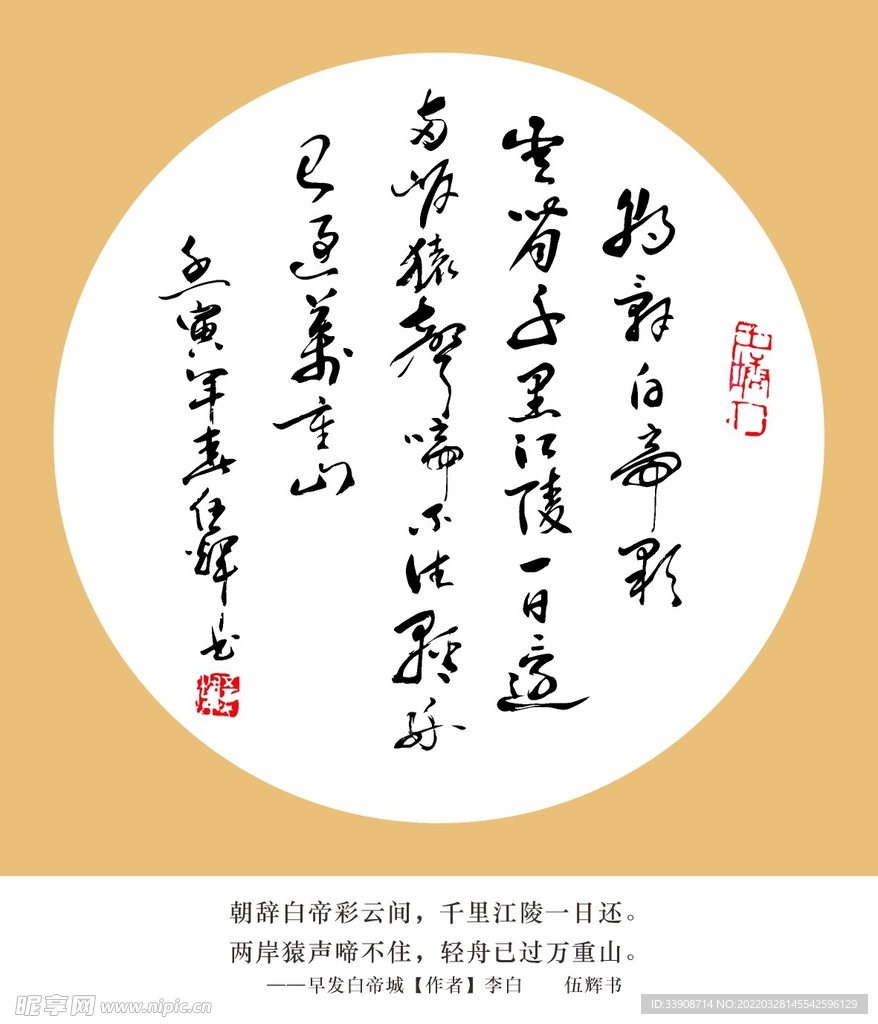 朝辞白帝彩
云间千里江陵一日還
两岸猿聲啼不住輕舟
已過萬重山
壬寅年春伍輝书
朝辞白帝彩云间，千里江陵一日还。
两岸猿声啼不住，轻舟已过万重山。
——早发白帝城【作者】李白 伍辉书
昵享网 www.nipic.cn
ID:33908714 NO:20220328145542596129